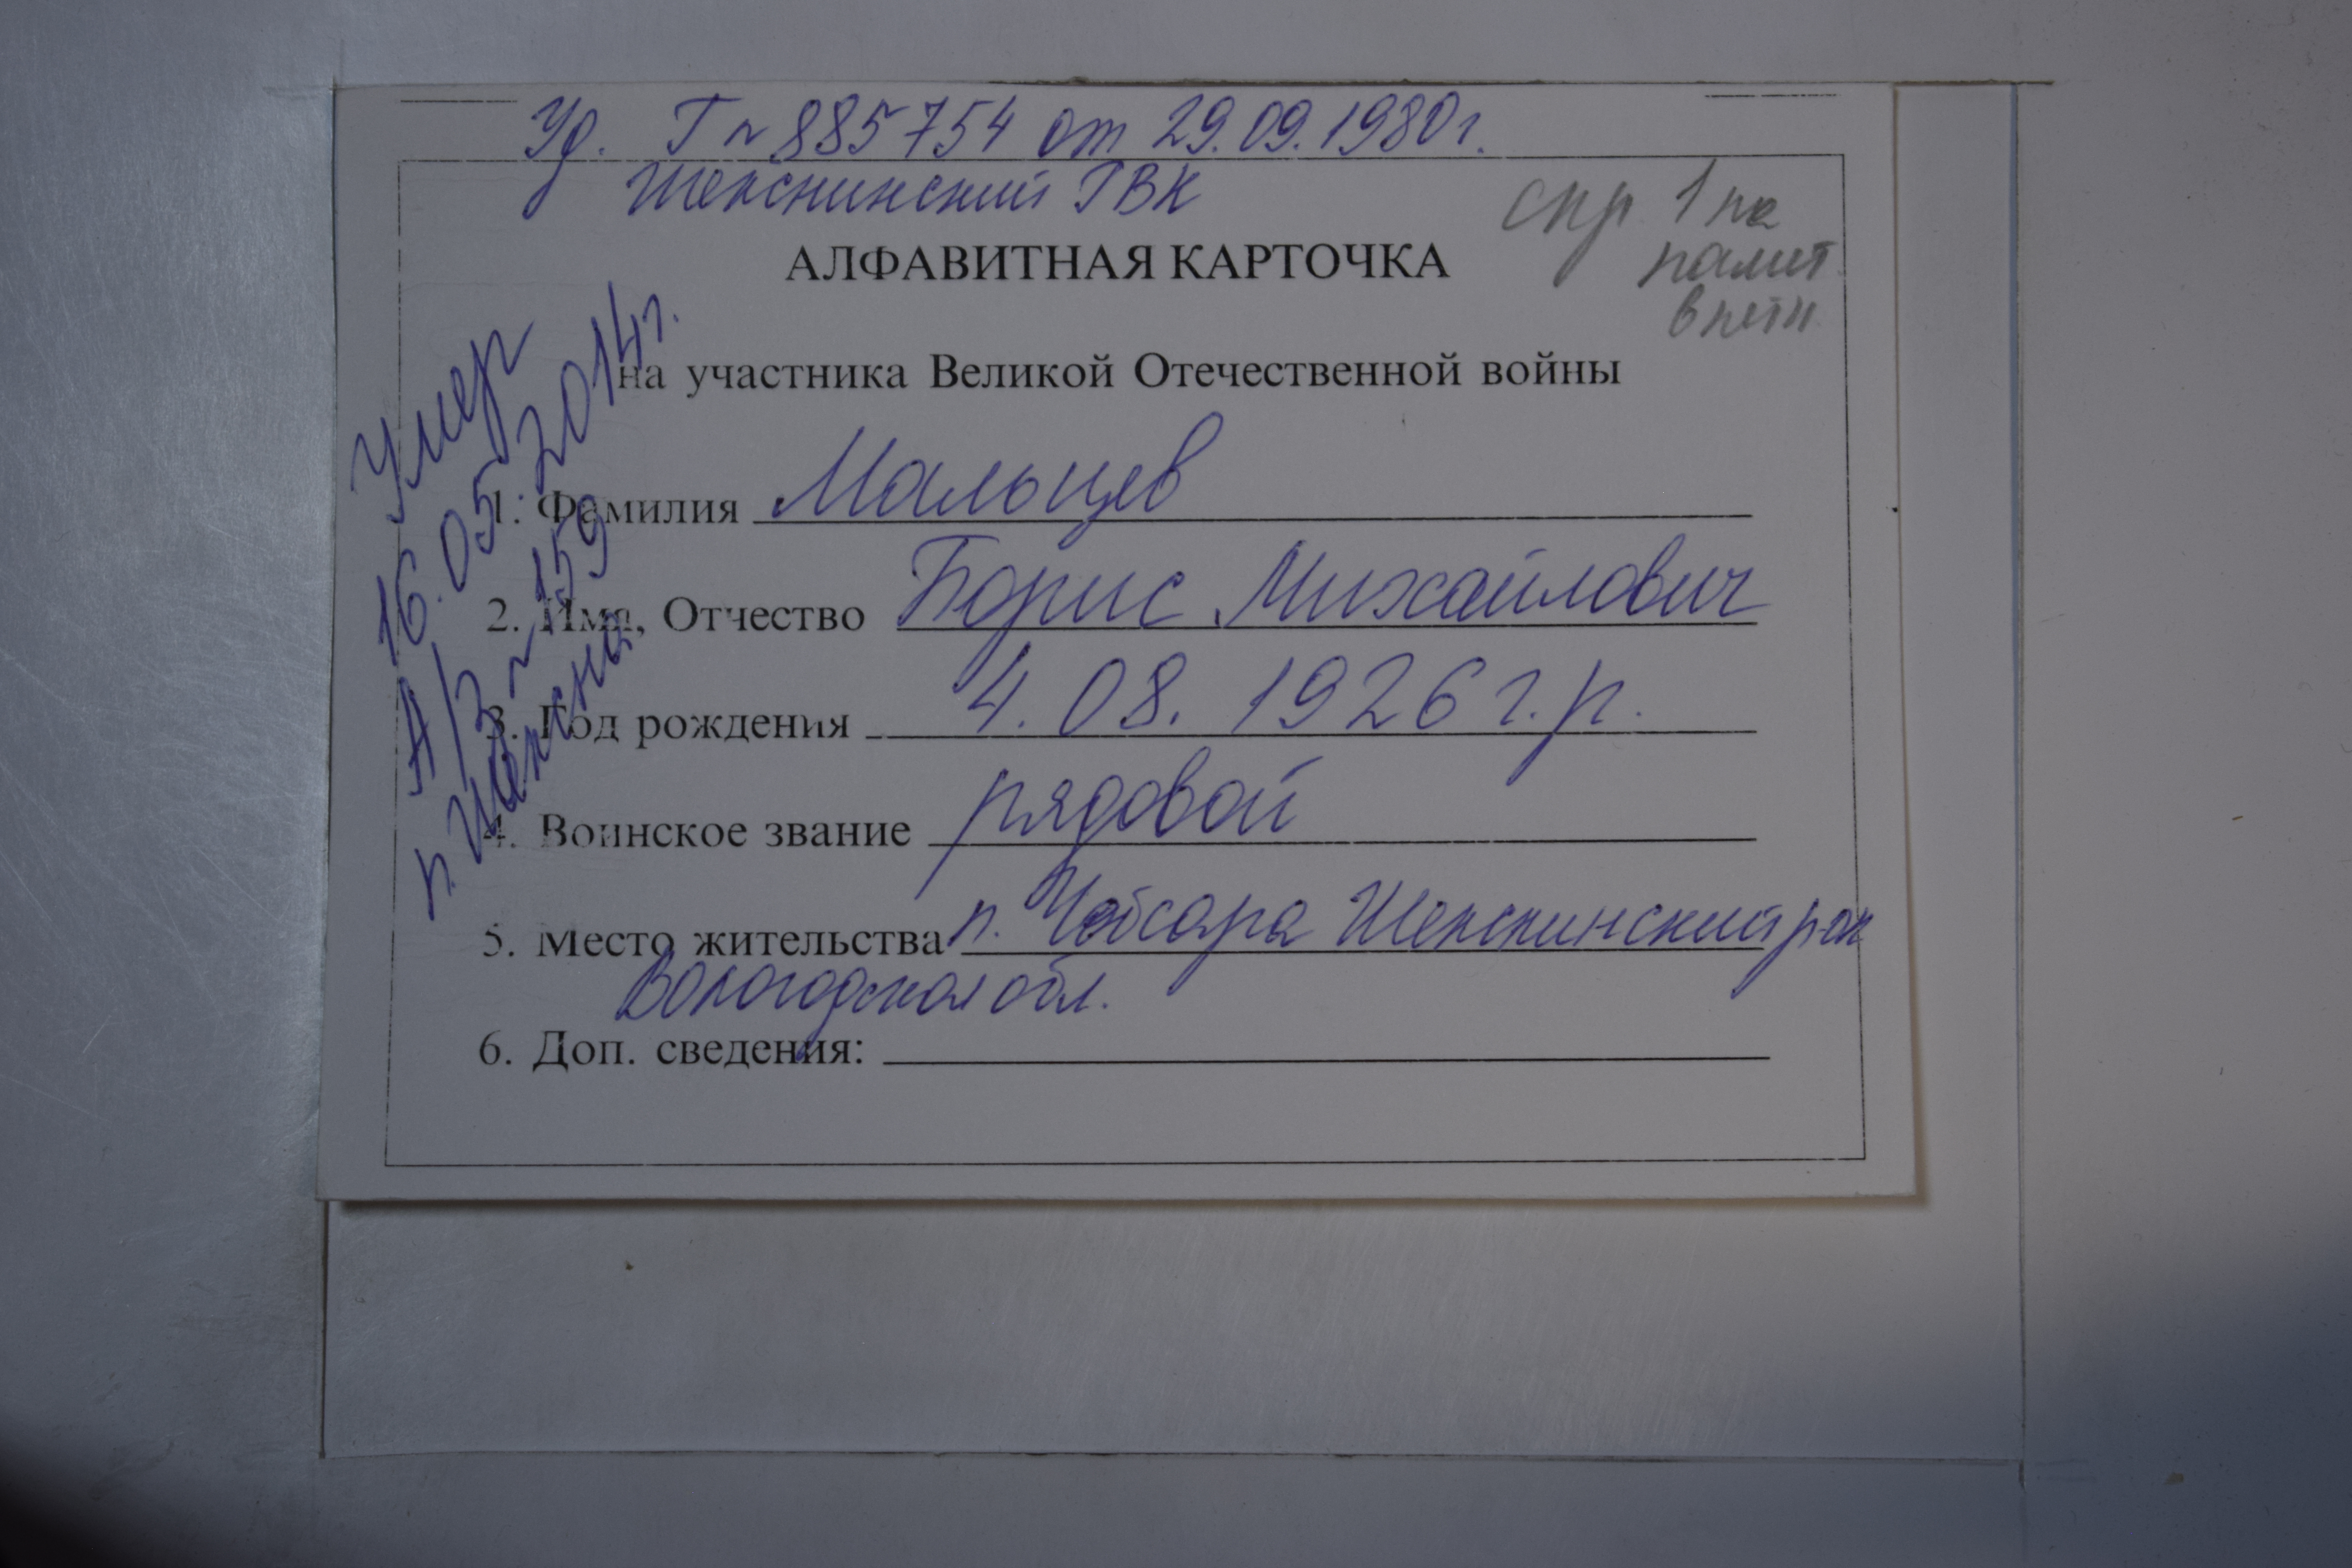 Уд. Г № 885754 от 29.09.1980г.
Шекснинский РВК
спр 1 на
памят
АЛФАВИТНАЯ КАРТОЧКА
на участника Великой Отечественной войны
Умер
16.05.2014г.
А/З № 159
п. Шексна
1. Фамилия Мальцев
2. Имя, Отчество Борис Михайлович
3. Год рождения 4.08.1926 г.р.
4. Воинское звание рядовой
5. Место жительства п. Чебсара Шекснинский рон
Вологодская обл.
6. Доп. сведения: